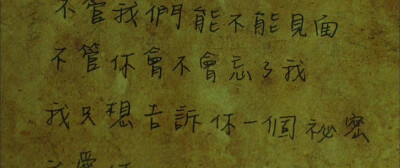 不管我們能不能見面
不管你會不會忘了我
我只想告訴你一個祕密